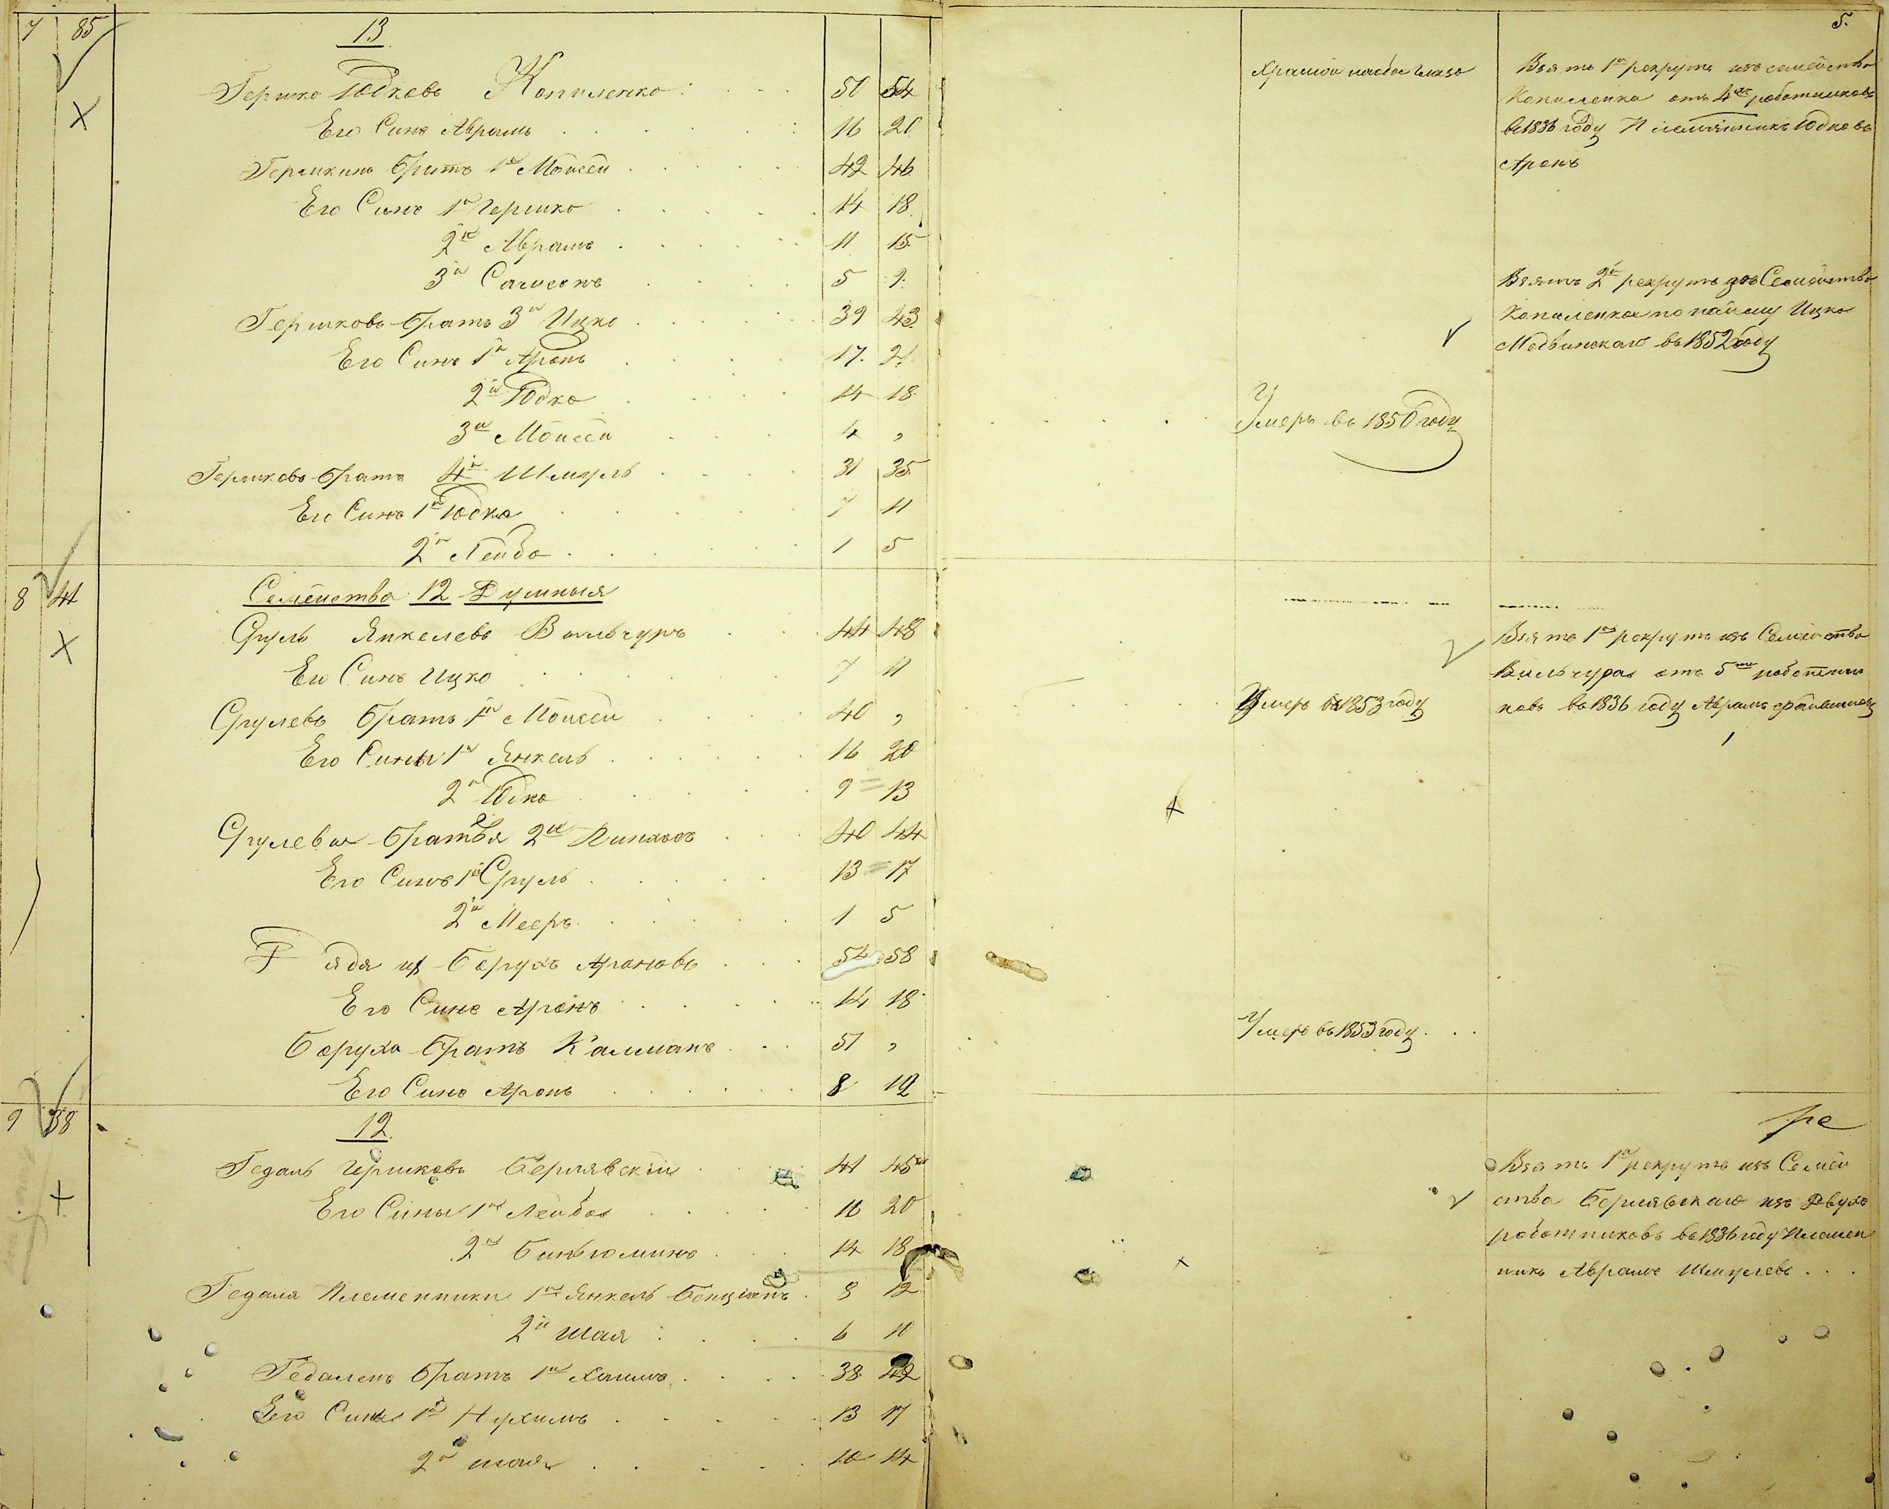 7 85 13 5.
Гершко Юдковъ Копиленко 50 54 Взятъ 1й рекрутъ изъ семейства
Копиленка отъ 4хъ работниковъ
Его Синъ Абрамъ 16 20 въ 1836 году Племянникъ Юдковъ
Аронъ
Гершкинъ братъ 1й Мойсей 42 46
Его Синъ 1й Гершко 14 18
2й Абрамъ 11 15
3й 5 9 Взятъ 2й рекрутъ изъ Семейства
Гершковъ братъ 3й Ицко 39 43 Копиленка по найму Ицко
Его Синъ 1й Аронъ 17 21 Медвинскаго въ 1852 году
2й Юдко 14 18
3й Мойсей 4 „ Умеръ въ 1850 году
Гершковъ братъ 4й Шмуль 31 35
Его Синъ 1й Юдко 7 11
2й Лейба 1 5
8 41 Семейства 12 Думныя
Сруль Янкелевъ Вильчуръ 44 48 Взятъ 1й рекрутъ изъ Семейства
Его Синъ Ицко 7 11 Вильчура отъ 5ти работни
Срулевъ братъ 1й Мойсей 40 „ Умеръ въ 1853 году ковъ въ 1836 году Абрамъ
Его Сины 1й Янкель 16 20
2й Юдко 9 13
Срулева братья 2й Пинхасъ 40 44
Его Синъ 1й Сруль 13 17
2й Мееръ 1 5
Дядя их Борухъ Ароновъ 54 58
Его Синъ Аронъ 14 18
Боруха братъ Калманъ 51 „ Умеръ въ 1853 году
Его Синъ Аронъ 8 12
9 38 12
Гедаль Гершковъ Берлявскій 41 45 Взятъ 1й рекрутъ изъ Семей
Его Сины 1й Лейба 16 20 ства Берлявскаго изъ Двухъ
2й Биньюминъ 14 18 работниковъ въ 1836 году Племен
Гедаля Племенники 1й Янкель 8 12 никъ Абрамъ Шмулевъ
2й Шая 6 10
Гедалевъ братъ 1й Хаимъ 38 42
Его Сины 1й Нухимъ 13 17
2й Шая 10 14